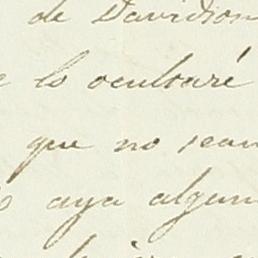 de Davidson
lo ocultaré
que no sean
aya algun